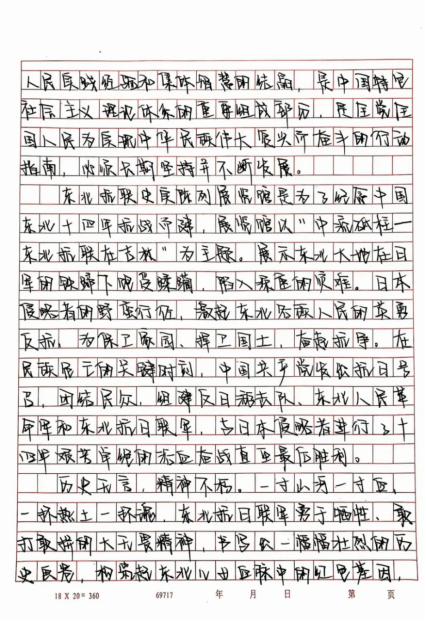 人民实践经验和集体智慧的结晶，是中国特色
社会主义理论体系的重要组成部分，是全党全
国人民为实现中华民族伟大复兴而奋斗的行动
指南，必须长期坚持并不断发展。
东北抗联史实陈列展览馆是为了纪念中国
东北十四年抗战而建，展览馆以"中流砥柱——
东北抗联在吉林"为主题。展示东北大地在日
军的铁蹄下饱受蹂躏，陷入深重的灾难。日本
侵略者的野蛮行径，激起东北各族人民的英勇
反抗。为保卫家园、捍卫国土，奋起抗争。在
民族危亡的关键时刻，中国共产党发出抗日号
召，团结民众，组建反日游击队、东北人民革
命军和东北抗日联军，与日本侵略者进行了十
四年艰苦卓绝的浴血奋战直至最后胜利。
历史无言，精神不朽。一寸山河一寸血，
一抔热土一抔魂，东北抗日联军勇于牺牲、敢
打敢拼的大无畏精神，书写出一幅幅壮烈的历
史画卷，构筑起东北儿女血脉中的红色基因，
18 X 20 = 360 69717 年 月 日 第 页